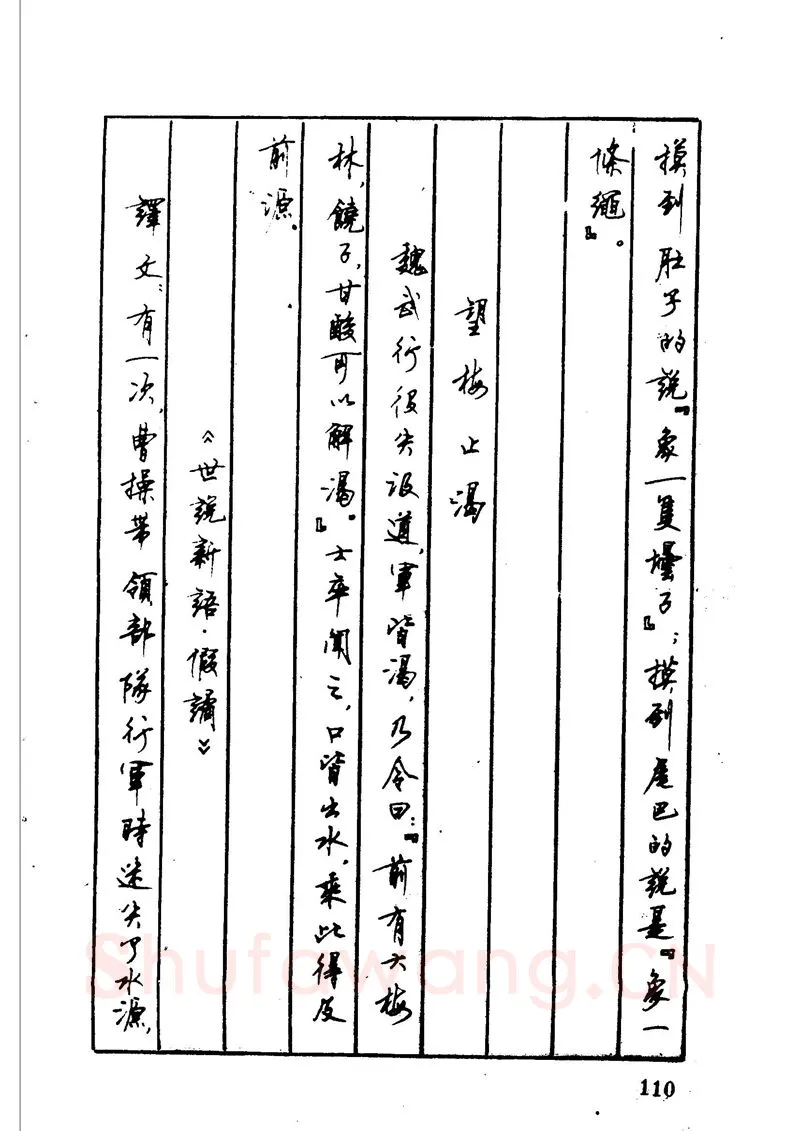 摸到肚子的說『象一隻壜子』；摸到尾巴的說是『象一
條繩』。
望梅止渴
魏武行役失汲道，軍皆渴，乃令曰：『前有大梅
林，饒子，甘酸可以解渴。』士卒聞之，口皆出水，乘此得及
前源。
《世說新語·假譎》
譯文：有一次，曹操帶領部隊行軍時迷失了水源，
110
Shufawang.CN